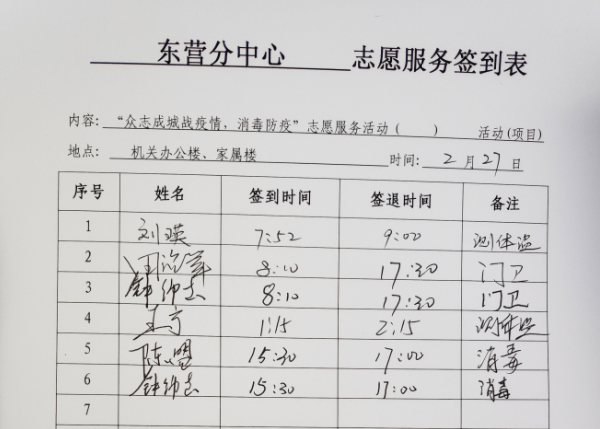 东营分中心 志愿服务签到表
内容：“众志成城战疫情，消毒防疫”志愿服务活动（ ） 活动(项目)
地点：机关办公楼、家属楼 时间：2月27日
序号 姓名 签到时间 签退时间 备注
1 刘瑛 7:52 9:00 测体温
2 8:10 17:30 门卫
3 8:10 17:30 门卫
4 1:15 2:15 测体温
5 陈盟 15:30 17:00 消毒
6 15:30 17:00 消毒
7